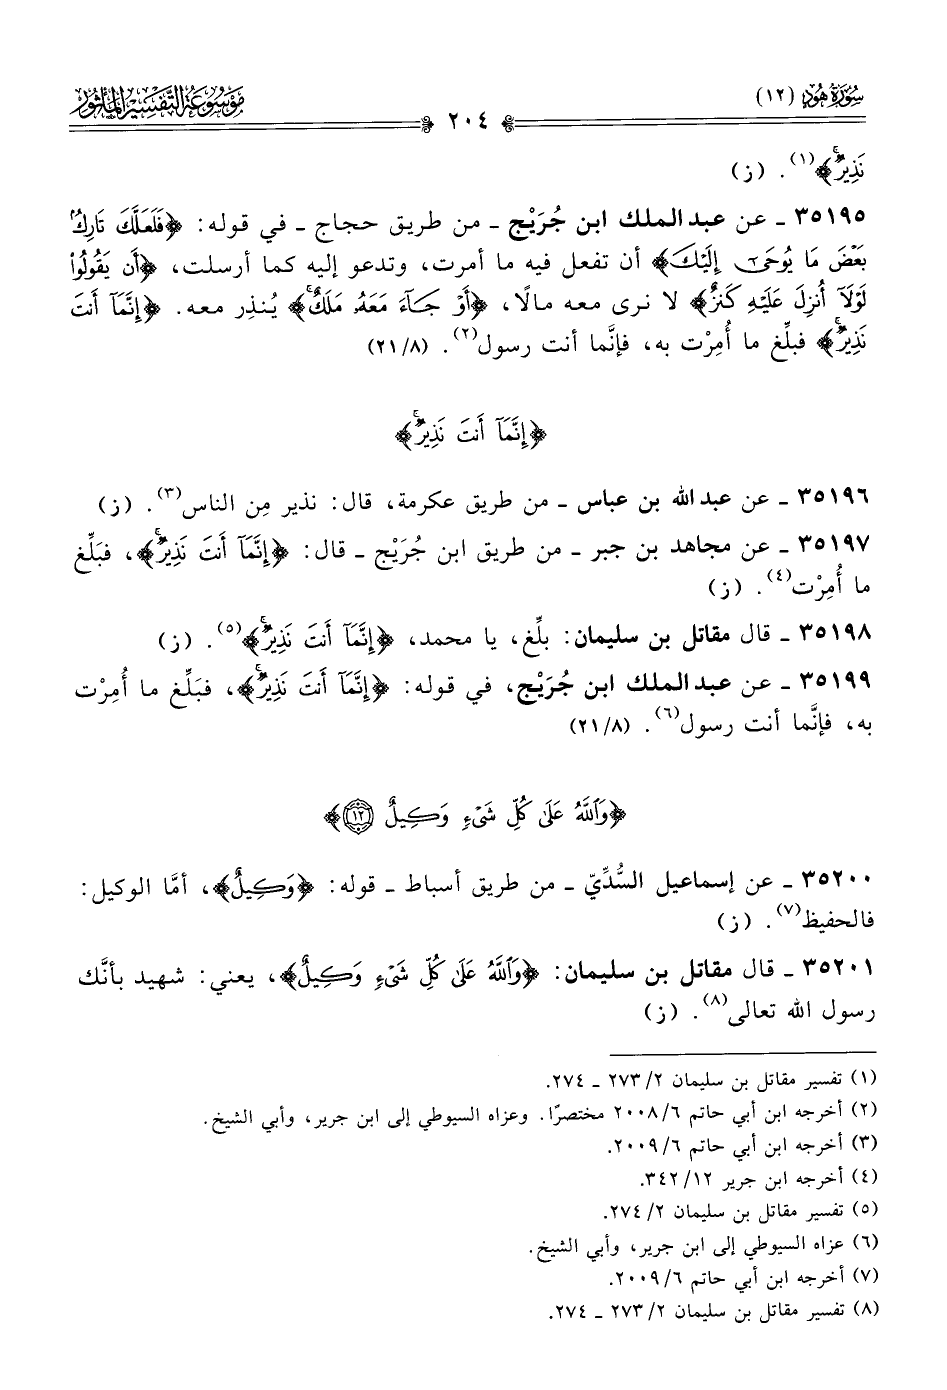 سُورَةُ هُودٍ (١٢)
٢٠٤
مَوْسُوعَةُ التَّفْسِيرِ المَأْثُورِ
نَذِيرٌۚ﴾(١). (ز)
٣٥١٩٥ ـ عن عبد الملك ابن جُرَيْج ـ من طريق حجاج ـ في قوله: ﴿فَلَعَلَّكَ تَارِكُۢ
بَعْضَ مَا يُوحَىٰٓ إِلَيْكَ﴾ أن تفعل فيه ما أمرت، وتدعو إليه كما أرسلت، ﴿أَن يَقُولُوا۟
لَوْلَآ أُنزِلَ عَلَيْهِ كَنزٌ﴾ لا نرى معه مالًا، ﴿أَوْ جَآءَ مَعَهُۥ مَلَكٌۚ﴾ يُنذِر معه. ﴿إِنَّمَآ أَنتَ
نَذِيرٌۚ﴾ فبلِّغ ما أُمِرْت به، فإنَّما أنت رسول(٢). (٢١/٨)
﴿إِنَّمَآ أَنتَ نَذِيرٌۚ﴾
٣٥١٩٦ ـ عن عبد الله بن عباس ـ من طريق عكرمة، قال: نذير مِن الناس(٣). (ز)
٣٥١٩٧ ـ عن مجاهد بن جبر ـ من طريق ابن جُرَيْج ـ قال: ﴿إِنَّمَآ أَنتَ نَذِيرٌۚ﴾، فبَلِّغ
ما أُمِرْت(٤). (ز)
٣٥١٩٨ ـ قال مقاتل بن سليمان: بلِّغ، يا محمد، ﴿إِنَّمَآ أَنتَ نَذِيرٌۚ﴾(٥). (ز)
٣٥١٩٩ ـ عن عبد الملك ابن جُرَيْج، في قوله: ﴿إِنَّمَآ أَنتَ نَذِيرٌۚ﴾، فبَلِّغ ما أُمِرْت
به، فإنَّما أنت رسول(٦). (٢١/٨)
﴿وَٱللَّهُ عَلَىٰ كُلِّ شَىْءٍ وَكِيلٌ ١٢﴾
٣٥٢٠٠ ـ عن إسماعيل السُّدِّيّ ـ من طريق أسباط ـ قوله: ﴿وَكِيلٌ﴾، أمَّا الوكيل:
فالحفيظ(٧). (ز)
٣٥٢٠١ ـ قال مقاتل بن سليمان: ﴿وَٱللَّهُ عَلَىٰ كُلِّ شَىْءٍ وَكِيلٌ﴾، يعني: شهيد بأنَّك
رسول الله تعالى(٨). (ز)
(١) تفسير مقاتل بن سليمان ٢/ ٢٧٣ ـ ٢٧٤.
(٢) أخرجه ابن أبي حاتم ٦/ ٢٠٠٨ مختصرًا. وعزاه السيوطي إلى ابن جرير، وأبي الشيخ.
(٣) أخرجه ابن أبي حاتم ٦/ ٢٠٠٩.
(٤) أخرجه ابن جرير ١٢/ ٣٤٢.
(٥) تفسير مقاتل بن سليمان ٢/ ٢٧٤.
(٦) عزاه السيوطي إلى ابن جرير، وأبي الشيخ.
(٧) أخرجه ابن أبي حاتم ٦/ ٢٠٠٩.
(٨) تفسير مقاتل بن سليمان ٢/ ٢٧٣ ـ ٢٧٤.